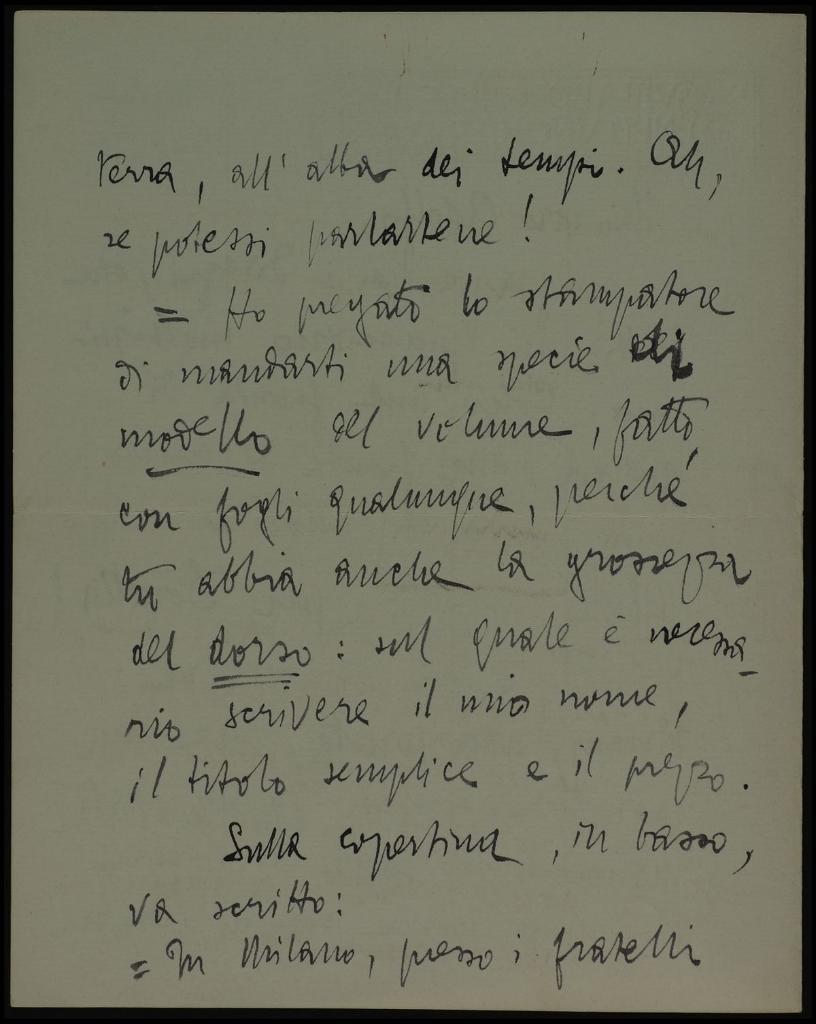 terra, all' alba dei tempi. Oh,
se potessi parlartene!
= Ho pregato lo stampatore
di mandarti una specie di
modello del volume, fatto
con fogli qualunque, perché
tu abbia anche la grossezza
del dorso: sul quale è necessa-
rio scrivere il mio nome,
il titolo semplice e il prezzo.
Sulla copertina, in basso,
va scritto:
= In Milano, presso i fratelli